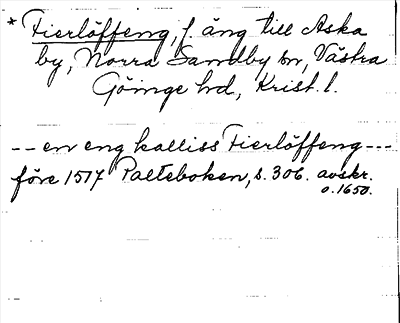 * Fierlöffeng, f. äng till Aska
by, Norra Sandby sn, Västra
Göinge hd, Krist. l.
-- en eng kalliss Fierlöffeng ---
före 1517 Palteboken, s. 306. avskr.
o. 1650.